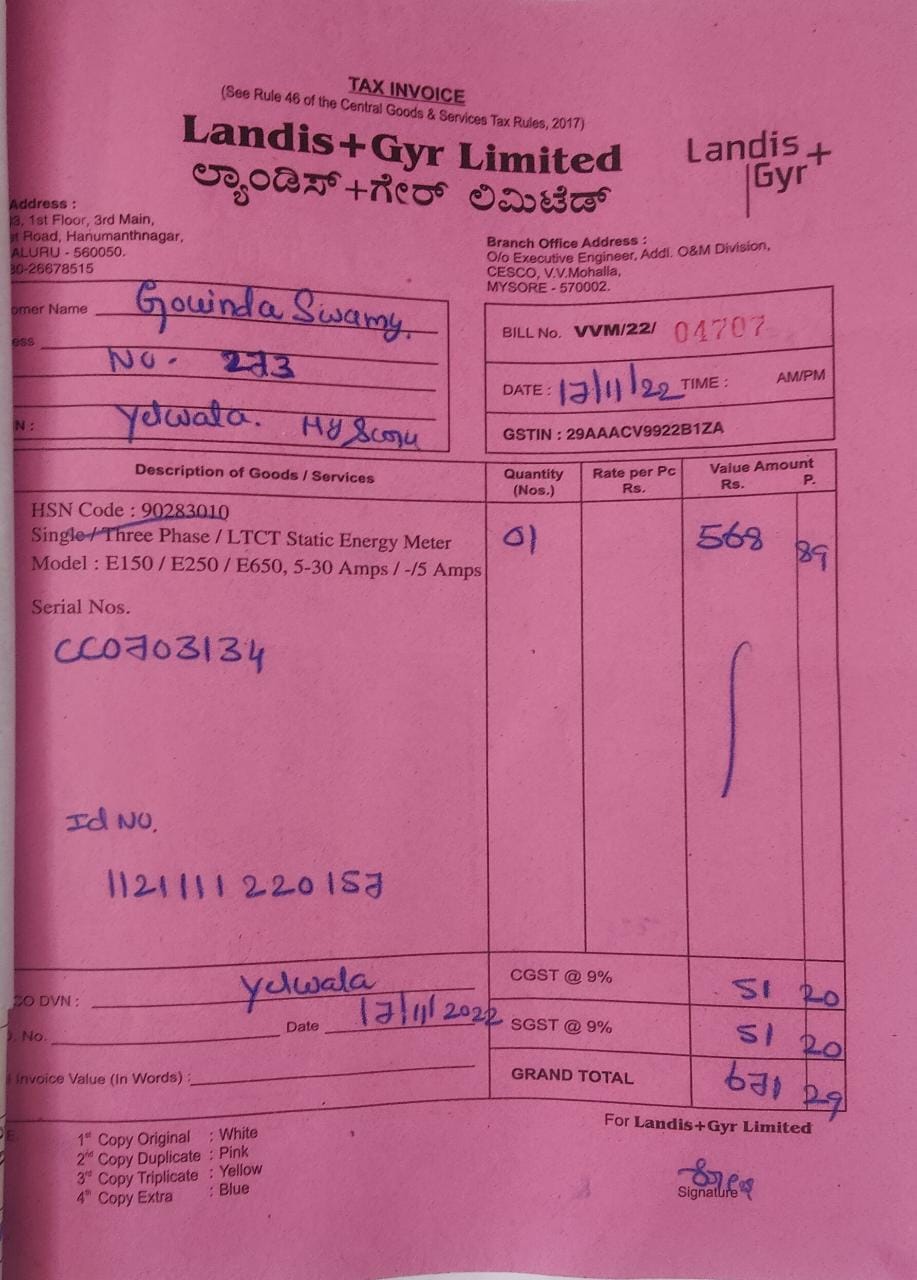 TAX INVOICE
(See Rule 46 of the Central Goods & Services Tax Rules, 2017)
Landis+Gyr Limited
ಲ್ಯಾಂಡಿಸ್+ಗೇರ್ ಲಿಮಿಟೆಡ್
Landis+
Gyr
Address :
3, 1st Floor, 3rd Main,
t Road, Hanumanthnagar,
ALURU - 560050.
0-26678515
Branch Office Address :
O/o Executive Engineer, Addl. O&M Division,
CESCO, V.V.Mohalla,
MYSORE - 570002.
omer Name Gowinda Swamy.
ess
No - 273
N : Yelwala. Mysoru
BILL No. VVM/22/ 04707
DATE : 17/11/22 TIME : AM/PM
GSTIN : 29AAACV9922B1ZA
Description of Goods / Services Quantity (Nos.) Rate per Pc Rs. Value Amount Rs. P.
HSN Code : 90283010
Single / Three Phase / LTCT Static Energy Meter 01 568 89
Model : E150 / E250 / E650, 5-30 Amps / -/5 Amps
Serial Nos.
CC0703134
Id No.
1121111220157
CGST @ 9% 51 20
SCO DVN : Yelwala
. No. Date 17/11/2022
SGST @ 9% 51 20
Invoice Value (In Words) :
GRAND TOTAL 671 29
For Landis+Gyr Limited
1st Copy Original : White
2nd Copy Duplicate : Pink
3rd Copy Triplicate : Yellow
4th Copy Extra : Blue
Signature